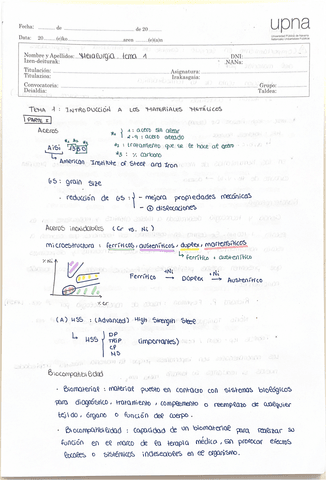 upna
Fecha: de de 20
Data: 20 ko aren
Nombre y Apellidos: Metalurgia tema 1 DNI:
Izen-deiturak: NANa:
Titulación: Asignatura:
Titulazioa: Irakasgaia:
Convocatoria: Grupo:
Deialdia: Taldea:
TEMA 1: INTRODUCCIÓN A LOS MATERIALES METÁLICOS
PARTE I
Aceros
1: acero sin alear
2-9: acero aleado
AISI
x2: tratamiento que se le hace al acero
x3: % carbono
American Institute of Steel and Iron
GS: grain size
• reducción de GS: - mejora propiedades mecánicas
- dislocaciones
Aceros inoxidables (Cr vs. Ni)
microestructura: ferríticos, austeníticos, dúplex, martensíticos
ferrítico + austenítico
% Ni
Ferrítico +Ni → Dúplex +Ni → Austenítico
% Cr
(A) HSS: (Advanced) High Strength Steel
HSS
DP
TRIP
CP
MS
(importantes)
Biocompatibilidad
• Biomaterial: material puesto en contacto con sistemas biológicos
para diagnóstico, tratamiento, complemento o reemplazo de cualquier
tejido, órgano o función del cuerpo.
• Biocompatibilidad: capacidad de un biomaterial para realizar su
función en el marco de la terapia médica, sin provocar efectos
locales o sistémicos indeseables en el organismo.